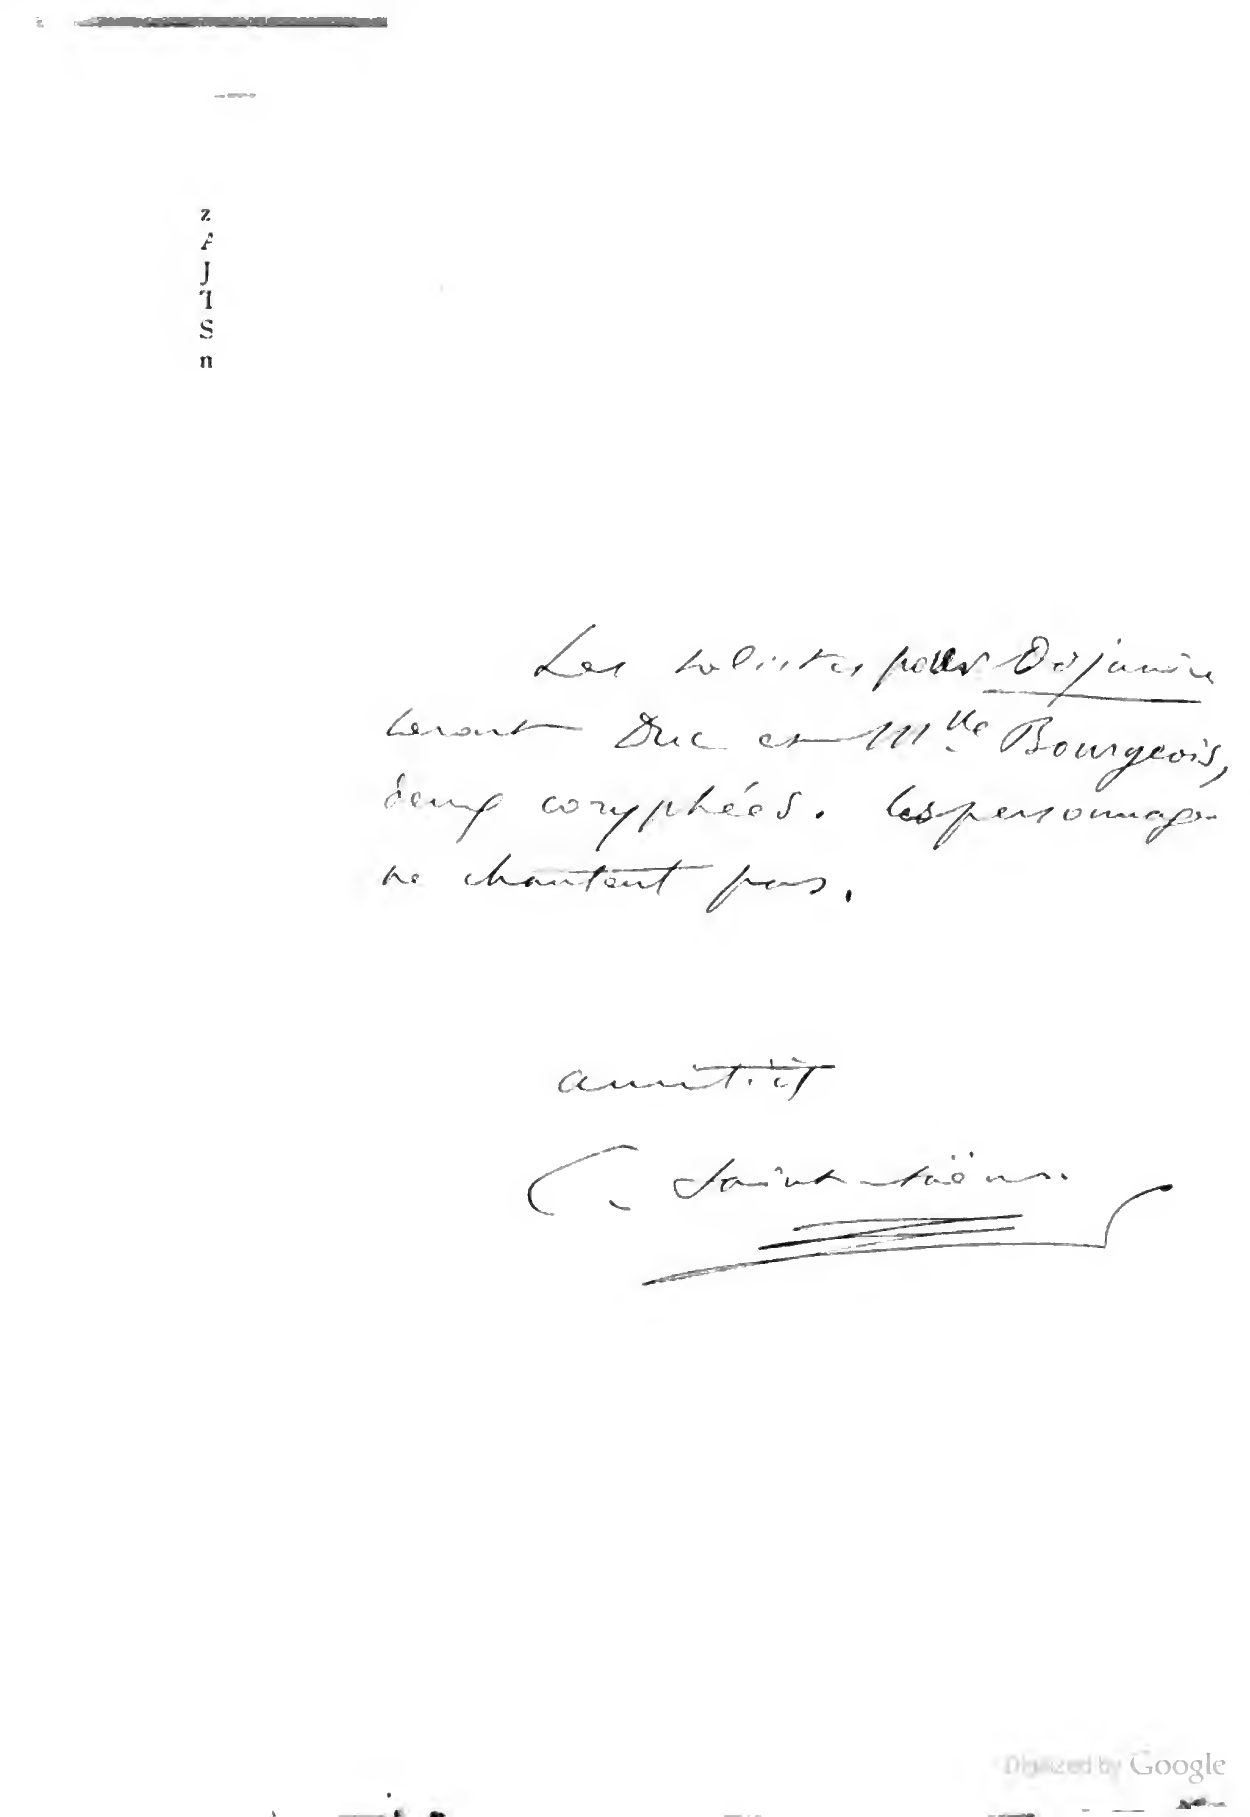 z
A
J
T
S
n
Les solistes pour Déjanire
seront Duc et Mlle Bourgeois,
deux coryphées. les personnages
ne chantent pas.
amitiés
C. Saint-Saëns
Digitized by Google